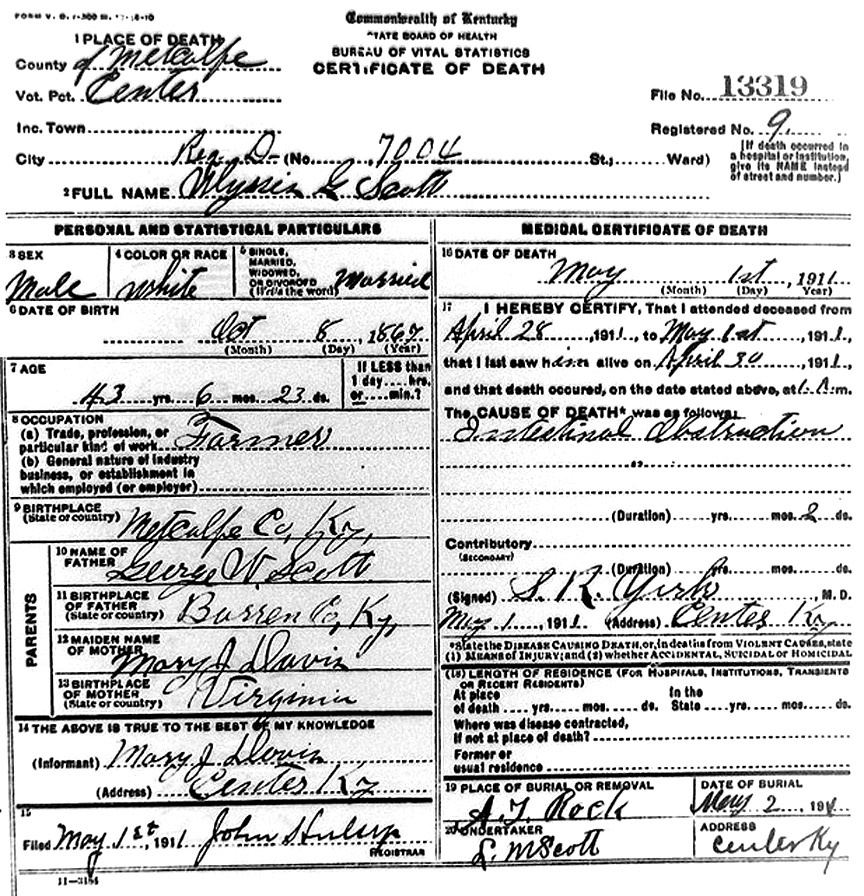 Commonwealth of Kentucky
STATE BOARD OF HEALTH
BUREAU OF VITAL STATISTICS
CERTIFICATE OF DEATH
1 PLACE OF DEATH
County of Metcalfe
Vot. Pct. Center
File No. 13319
Inc. Town
Registered No. 9.
City Reg. D. (No. 7004 St.; Ward)
[If death occurred in a hospital or institution, give its NAME instead of street and number.]
2 FULL NAME G Scott
PERSONAL AND STATISTICAL PARTICULARS
3 SEX
Male
4 COLOR OR RACE
White
5 SINGLE, MARRIED, WIDOWED, OR DIVORCED (Write the word) Married
6 DATE OF BIRTH
Oct 8, 1867
(Month) (Day) (Year)
7 AGE
43 yrs. 6 mos. 23 ds.
If LESS than
1 day hrs.
or min.?
8 OCCUPATION
(a) Trade, profession, or
particular kind of work Farmer
(b) General nature of industry
business, or establishment in
which employed (or employer)
9 BIRTHPLACE
(State or country) Metcalfe Co, Ky,
PARENTS
10 NAME OF
FATHER George W. Scott
11 BIRTHPLACE
OF FATHER
(State or country) Barren Co, Ky,
12 MAIDEN NAME
OF MOTHER Mary J Davis
13 BIRTHPLACE
OF MOTHER
(State or country) Virginia
14 THE ABOVE IS TRUE TO THE BEST OF MY KNOWLEDGE
(Informant) Mary J Davis
(Address) Center Ky
15
Filed May 1st, 1911 John
REGISTRAR
11—3184
MEDICAL CERTIFICATE OF DEATH
16 DATE OF DEATH
May 1st, 1911
(Month) (Day) Year)
17 I HEREBY CERTIFY, That I attended deceased from
April 28, 1911, to May 1st 1911,
that I last saw him alive on April 30 1911,
and that death occured, on the date stated above, at 1. A. m.
The CAUSE OF DEATH* was as follows:
Intestinal Obstruction
(Duration) yrs. mos. 2 ds.
Contributory
(SECONDARY)
(Duration) yrs. mos. ds.
(Signed) S. R. M. D.
May 1, 1911. (Address) Center Ky
*State the DISEASE CAUSING DEATH, or, in deaths from VIOLENT CAUSES, state
(1) MEANS OF INJURY; and (2) whether ACCIDENTAL, SUICIDAL OR HOMICIDAL
(18) LENGTH OF RESIDENCE (FOR HOSPITALS, INSTITUTIONS, TRANSIENTS
OR RECENT RESIDENTS)
At place In the
of death yrs. mos. ds. State yrs. mos. ds.
Where was disease contracted,
If not at place of death?
Former or
usual residence
19 PLACE OF BURIAL OR REMOVAL
Rock
DATE OF BURIAL
May 2, 191
20 UNDERTAKER
L. M Scott
ADDRESS
Center Ky